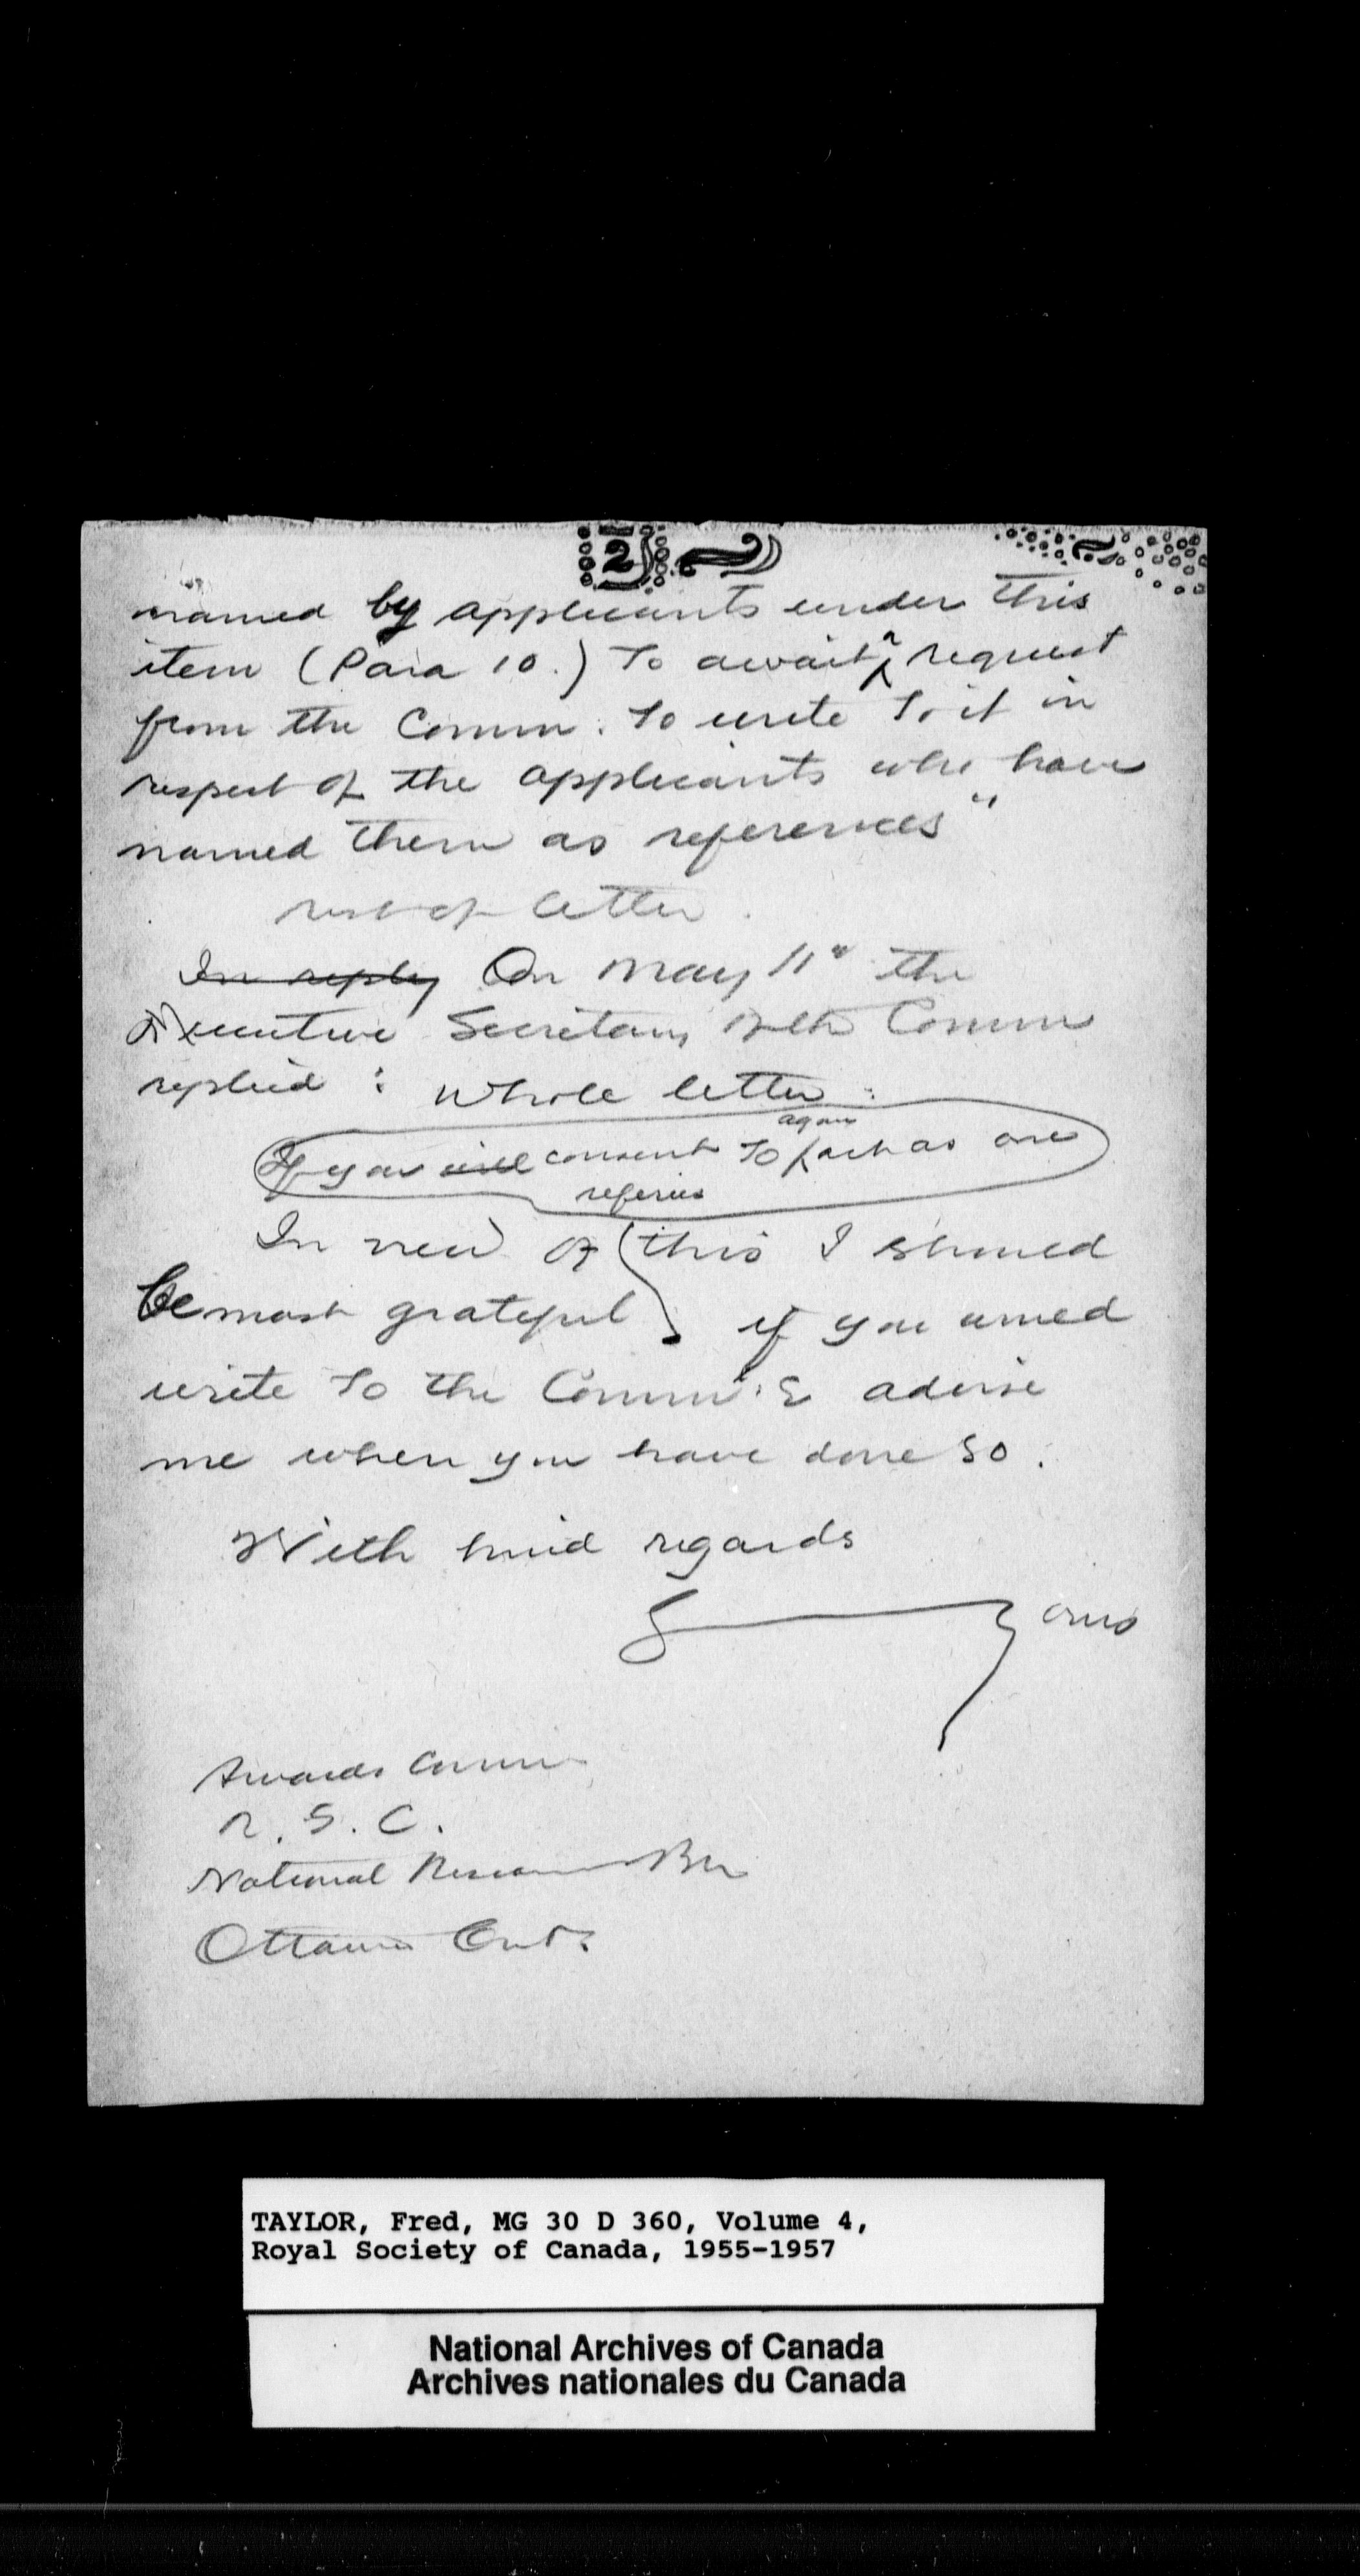 2
named by applicants under this
item (Para 10.) to await a request
from the Comm. to write to it in
respect of the applicants who have
named them as references"
rest of letter.
In reply On May 11" the
Executive Secretary of the Comm
replied : Whole letter :
again
If you will consent to act as one
referees
In view of this I should
be most grateful if you would
write to the Comm. & advise
me when you have done so.
With kind regards
S Yours
Awards Comm
R. S. C.
National Research
Ottawa Ont.
TAYLOR, Fred, MG 30 D 360, Volume 4,
Royal Society of Canada, 1955-1957
National Archives of Canada
Archives nationales du Canada